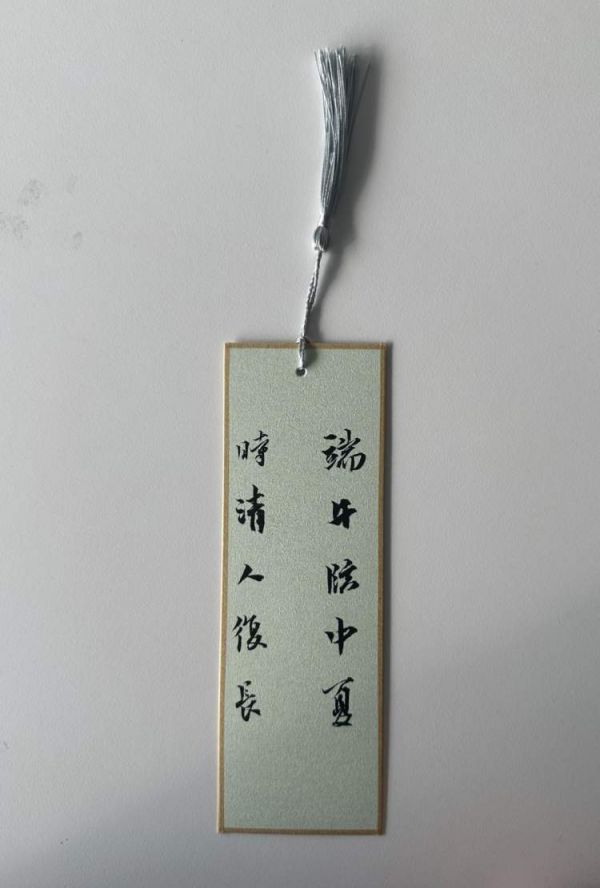 端午臨中夏
時清人復長